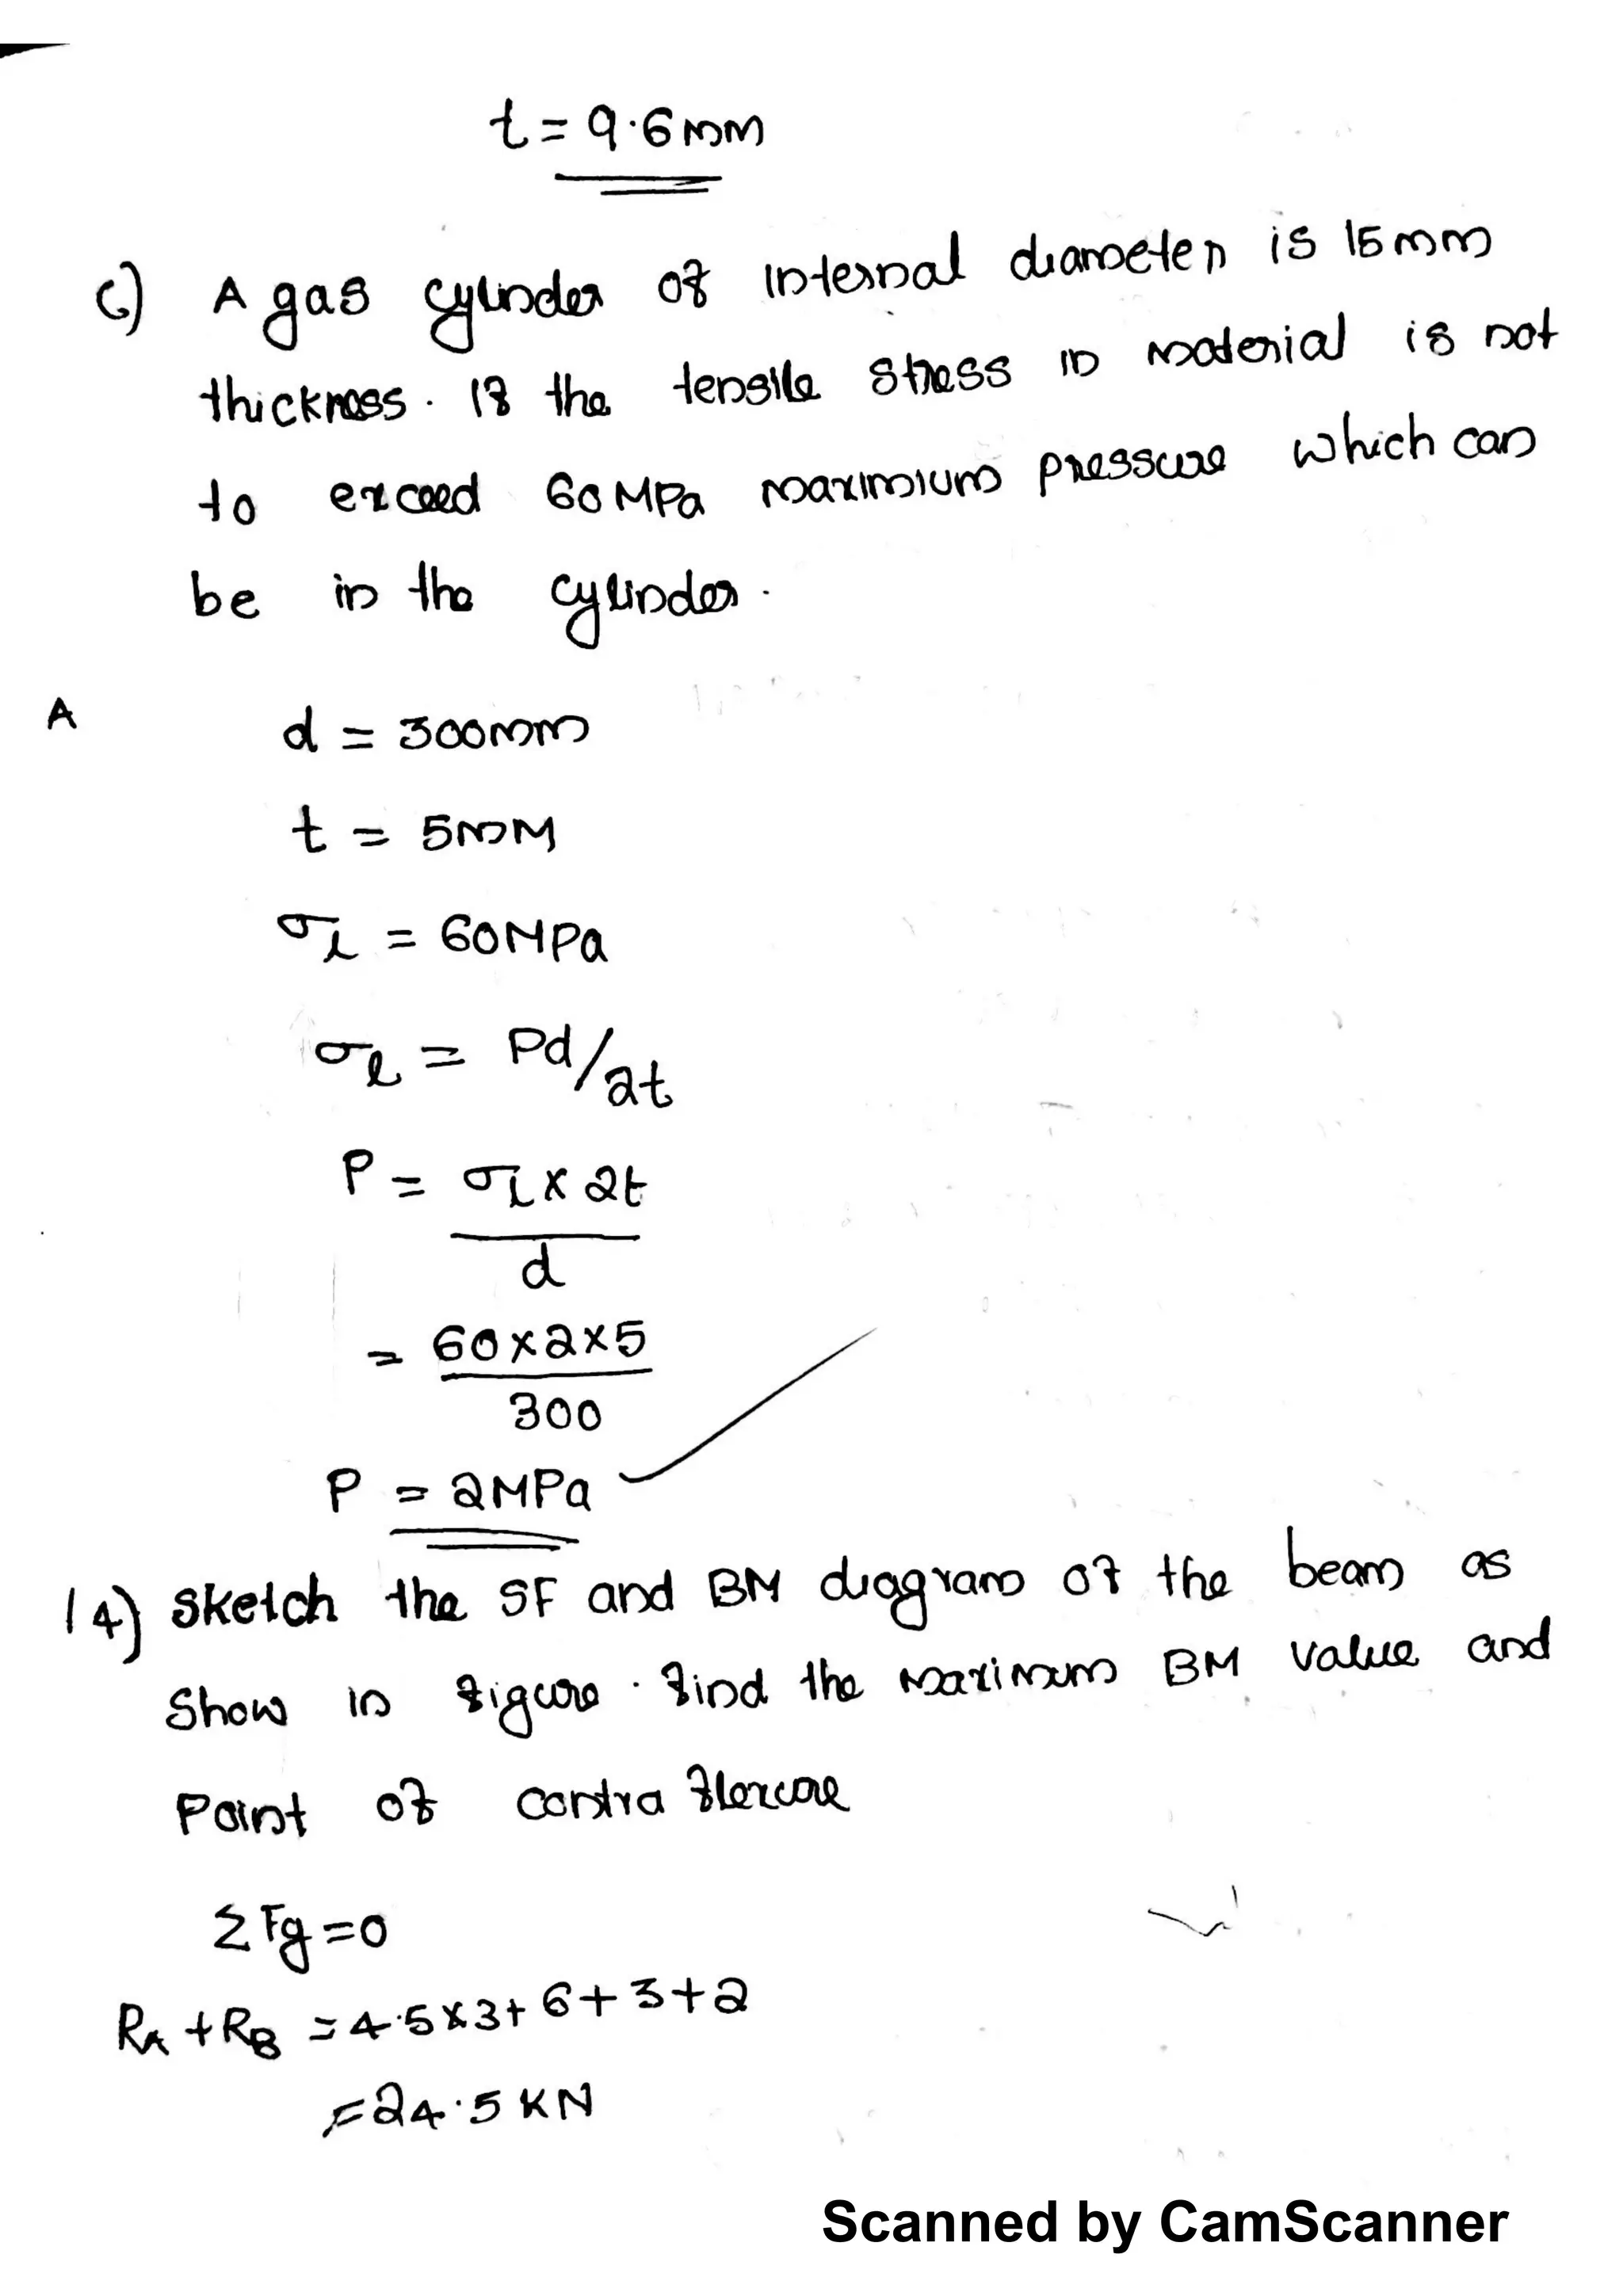 t = 9.6mm
c) A gas cylinder of internal diameter is 15mm
thickness. If the tensile stress in material is not
to exceed 60MPa maximium pressure which can
be in the cylinder.
A d = 300mm
t = 5mm
σL = 60MPa
σl = Pd/2t
P = σL x 2t
d
= 60x2x5
300
P = 2MPa ✓
14) Sketch the SF and BM diagram of the beam as
Show in figure. find the maximum BM value and
Point of contra flexure
ΣFy=0
RA + RB = 4.5x3+6+3+2
=24.5 KN
Scanned by CamScanner